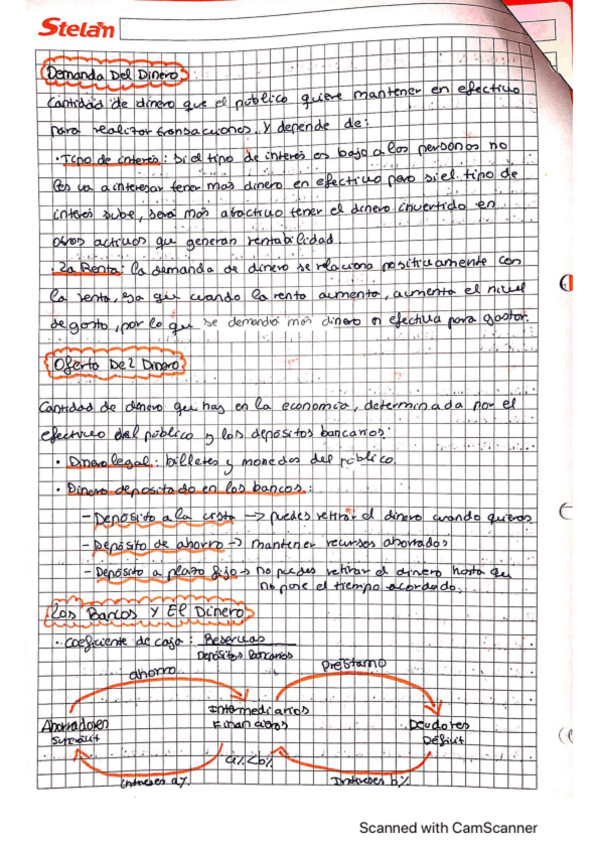 Stelan
Demanda Del Dinero
Cantidad de dinero que el público quiere mantener en efectivo
para realizar transaciones. Y depende de:
· Tipo de interes: si el tipo de interés es bajo a las personas no
les va a interesar tener mas dinero en efectivo pero si el tipo de
interés sube, será más atractivo tener el dinero invertido en
otros activos que generan rentabilidad.
· La Renta: la demanda de dinero se relaciona positivamente con
la renta, ya que cuando la renta aumenta, aumenta el nivel
de gasto, por lo que se demanda más dinero en efectivo para gastar.
Oferta Del Dinero
Cantidad de dinero que hay en la economía, determinada por el
efectivo del público y los depósitos bancarios.
· Dinero legal: billetes y monedas del público.
· Dinero depositado en los bancos:
- Depósito a la vista -> puedes retirar el dinero cuando quieras
- Depósito de ahorro -> mantener recursos ahorrados
- Depósito a plazo fijo -> no puedes retirar el dinero hasta que
no pase el tiempo acordado.
Los Bancos Y El Dinero
· Coeficiente de caja: Reservas
Depósitos Bancarios
ahorro préstamo
Ahorradores Intermediarios Financieros Deudores
Superávit Déficit
a%<b%
Intereses a% Intereses b%
Scanned with CamScanner